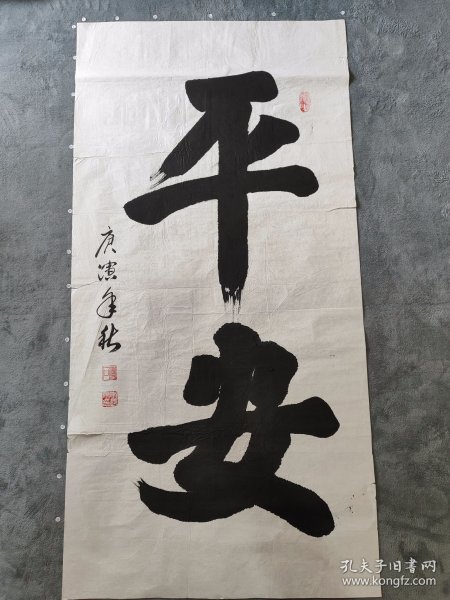 平
安
庚寅年秋
孔夫子旧书网
www.kongfz.com